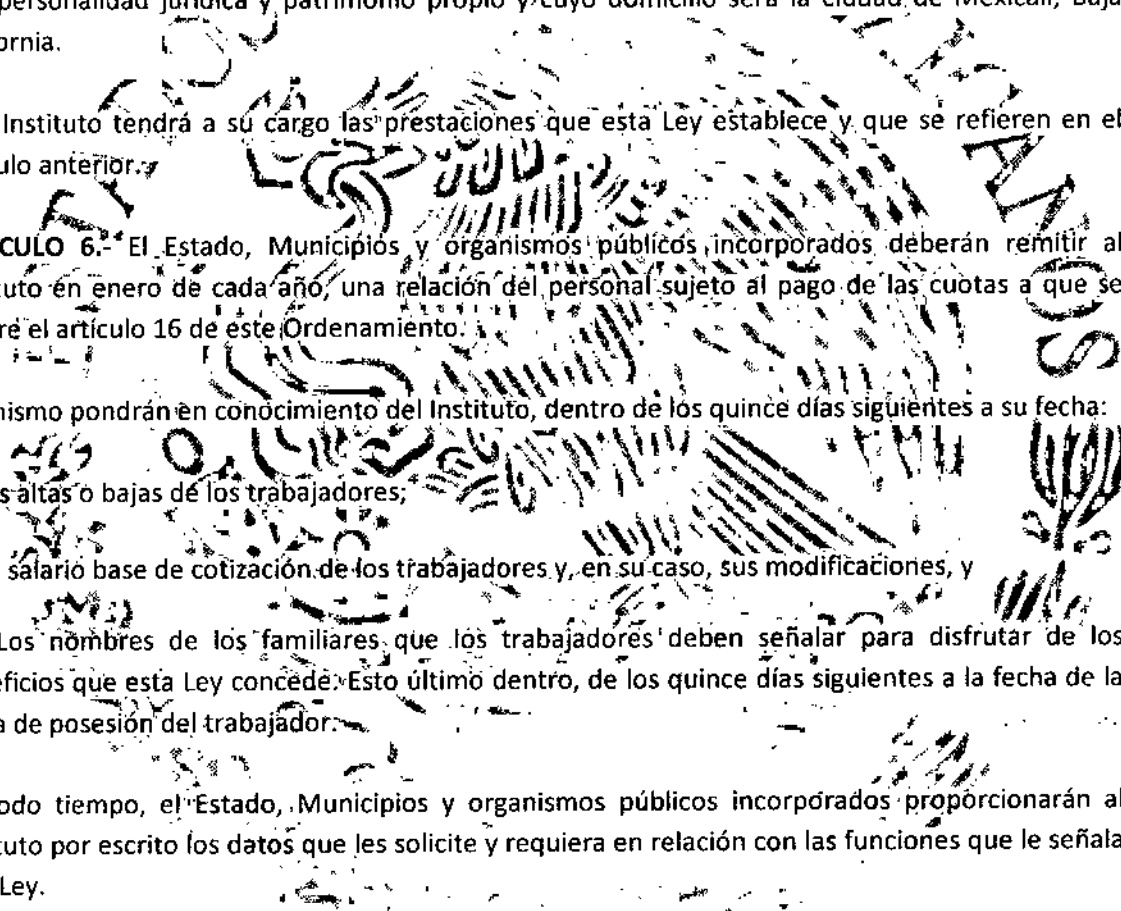 personalidad jurídica y patrimonio propio y cuyo domicilio será la ciudad de Mexicali, Baja
ornia.
Instituto tendrá a su cargo las prestaciones que esta Ley establece y que se refieren en el
ulo anterior.
CULO 6.- El Estado, Municipios y organismos públicos incorporados deberán remitir al
tuto en enero de cada año, una relación del personal sujeto al pago de las cuotas a que se
re el artículo 16 de este Ordenamiento.
nismo pondrán en conocimiento del Instituto, dentro de los quince días siguientes a su fecha:
s altas o bajas de los trabajadores;
salario base de cotización de los trabajadores y, en su caso, sus modificaciones, y
Los nombres de los familiares que los trabajadores deben señalar para disfrutar de los
eficios que esta Ley concede. Esto último dentro, de los quince días siguientes a la fecha de la
a de posesión del trabajador.
odo tiempo, el Estado, Municipios y organismos públicos incorporados proporcionarán al
tuto por escrito los datos que les solicite y requiera en relación con las funciones que le señala
Ley.